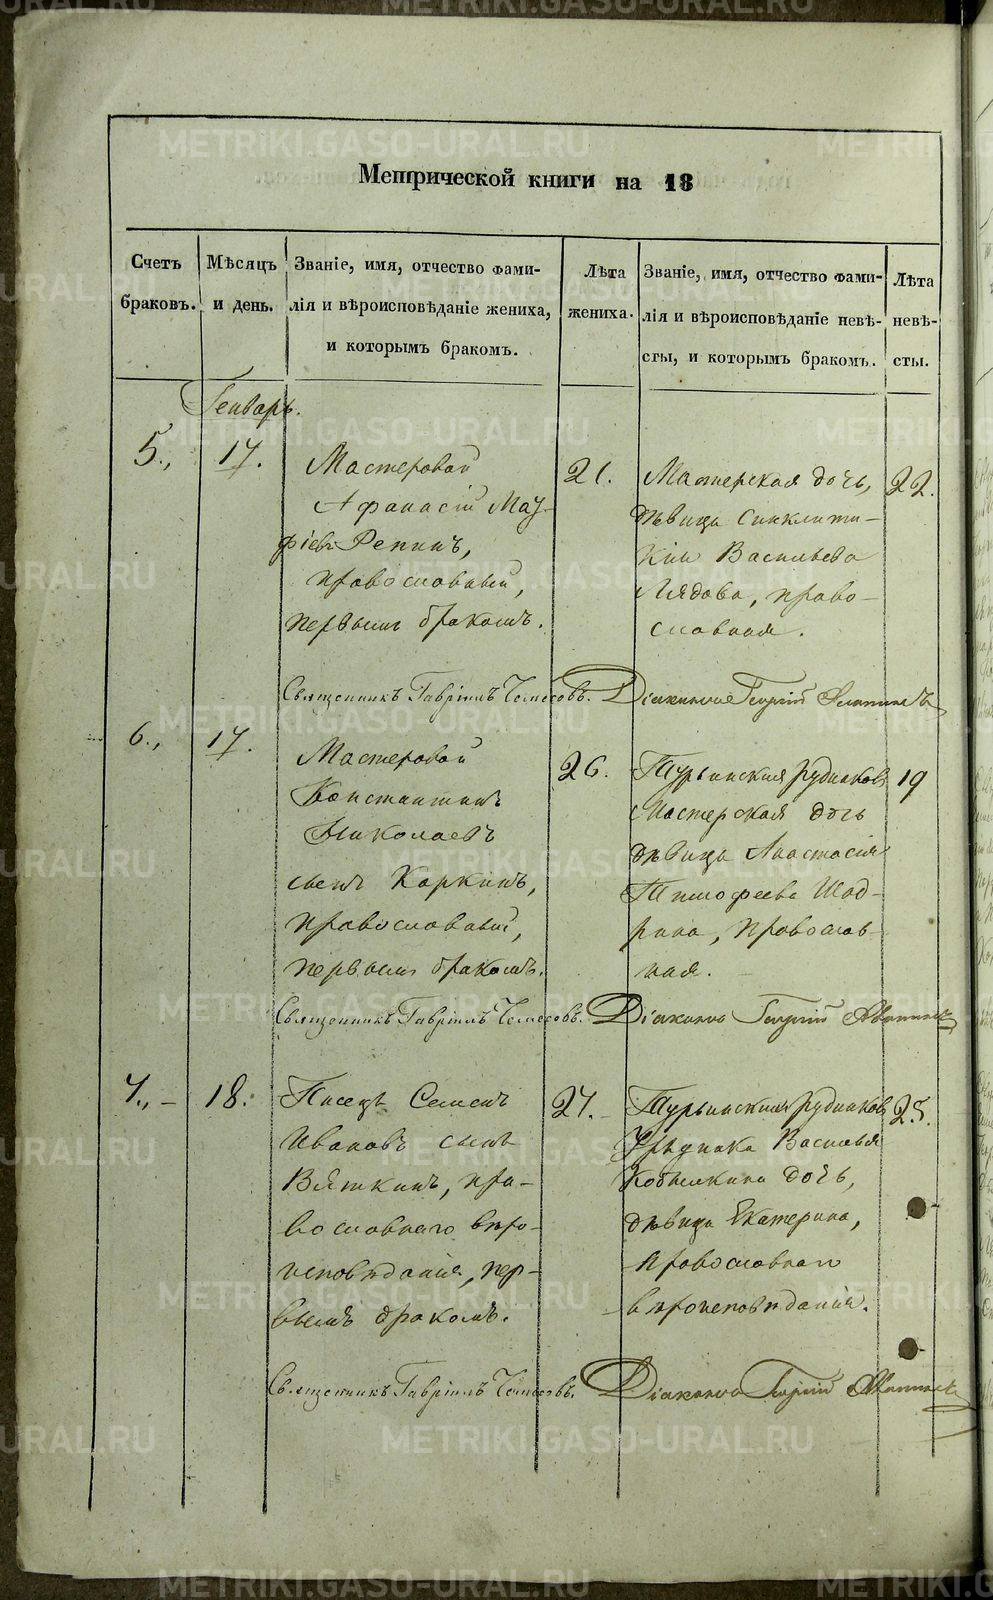 Метрической книги на 18
Счетъ браковъ.
Мѣсяцъ и день.
Званіе, имя, отчество фами-
лія и вѣроисповѣданіе жениха,
и которымъ бракомъ.
Лѣта
жениха.
Званіе, имя, отчество фами-
лія и вѣроисповѣданіе невѣ-
сты, и которымъ бракомъ.
Лѣта
невѣ-
сты.
Генварь.
5., 17.
Мастеровой
Афанасій
Репинъ,
православный,
первымъ бракомъ.
21.
Мастерская дочь,
дѣвица Синклити-
кія Васильева
Лядова, право-
славная.
22.
Священникъ Гавріилъ Діаконъ Георгій
6., 17.
Мастеровой
Константинъ
Николаевъ
сынъ Каркинъ,
православный,
первымъ бракомъ.
26.
Турьинскихъ рудниковъ
Мастерская дочь
дѣвица Анастасія
Тимофеева Шад-
рина, православ-
ная.
19
Священникъ Гавріилъ Діаконъ Георгій
7., - 18.
Писецъ Семенъ
Ивановъ сынъ
Вяткинъ, пра-
вославнаго вѣро-
исповѣданія, пер-
вымъ бракомъ.
27.
Турьинскихъ рудниковъ
Урядника Василья
Кобылкина дочь,
дѣвица Екатерина,
православнаго
вѣроисповѣданія.
25.
Священникъ Гавріилъ Діаконъ Георгій
METRIKI.GASO-URAL.RU